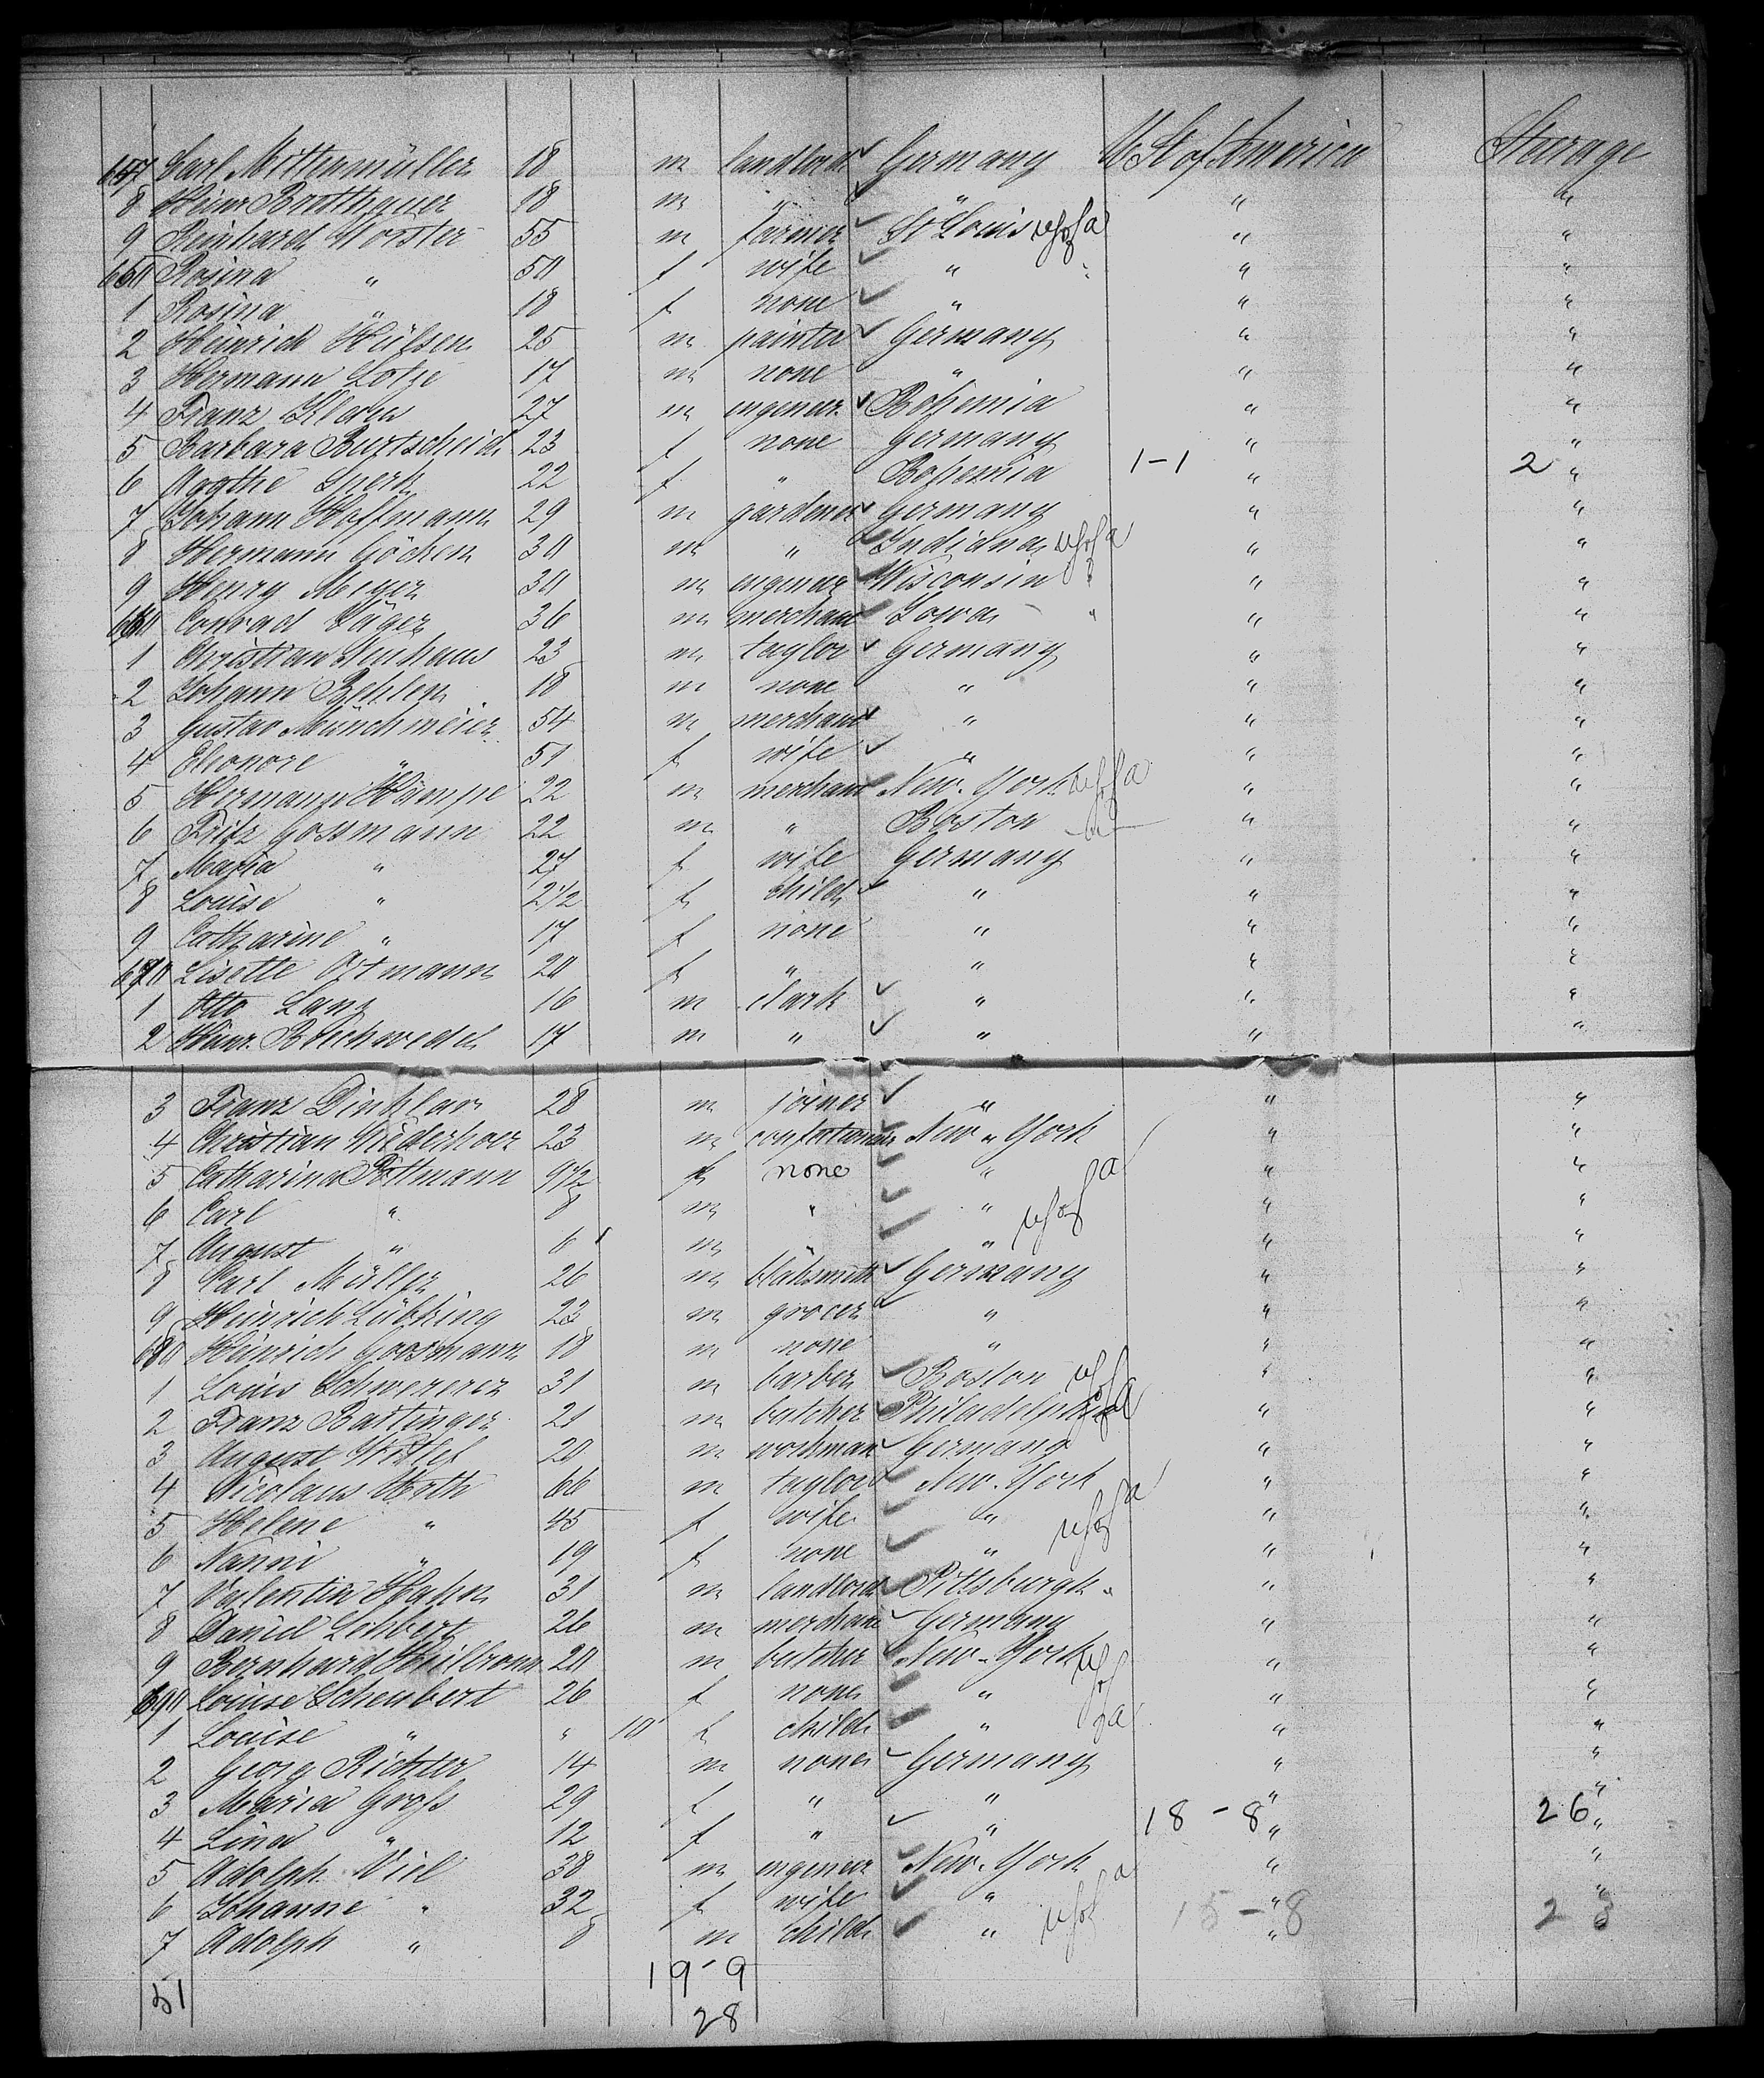 647 Carl Mittenmüller 18 m landlord Germany U St of America Steerage
8 Heinr 18 m " " " "
9 Reinhard Worster 55 m farmer St Louis U S of A " "
650 Rosina " 50 f wife " " "
1 Rosina " 18 f none " " "
2 Heinrich Hülsen 25 m painter Germany " "
3 Hermann Lotze 17 m none " " "
4 Franz 27 m engeneer Bohemia " "
5 Barbara Burtscheid 23 f none Germany " "
6 Agathe 22 f " Bohemia 1-1 " 2 "
7 Johann Hoffmann 29 m gardener Germany " "
8 Hermann Göcken 30 m " Indiana U S of A " "
9 Henry Meyer 30 m engeneer Wisconsin " "
660 Conrad Jäger 36 m merchant Iowa " " "
1 Christian Neuhaus 23 m taylor Germany " "
2 Johann Behlen 18 m none " " "
3 Gustav Münchmeier 54 m merchant " " "
4 Eleonore " 51 f wife " " "
5 Hermann Hampe 22 m merchant New-York U S of A " "
6 Fritz Gossmann 22 m " Boston " "
7 Maria " 27 f wife Germany " "
8 Louise " 2 1/2 f child " " "
9 Catharine " 17 f none " " "
670 Lisette Ortmann 20 f " " " "
1 Otto Lang 16 m clark " " "
2 Heinr. 17 m " " " "
3 Franz Dinklar 28 m joiner " " "
4 Christian Niederhoer 23 m New-York " "
5 Catharina Pottmann 9 1/2 f none " " "
6 Carl " 8 m " " U S of A " "
7 August " 6 m " " "
8 Carl Müller 26 m blaksmith Germany " "
9 Heinrich Lübking 23 m grocer " " "
680 Heinrich Goosmann 18 m none " " "
1 Louis Schwererer 31 m barber Boston U S of A " "
2 Franz Battinger 21 m butcher Philadelphia " "
3 August 20 m workman Germany " "
4 Nicolaus Roth 66 m taylor New-York " "
5 Helene " 45 f wife " U S of A " "
6 Nanni " 19 f none " " "
7 Valentin Hahn 31 m landlord Pittsburgh " "
8 Daniel Lehbert 26 m merchant Germany " "
9 Bernhard Heilbronn 20 m butcher New-York U S of A " "
690 Louise Scheubert 26 f none " " "
1 Louise " " 10 f child " " "
2 Georg Richter 14 m none Germany " "
3 Maria Groß 29 f " " " "
4 Lina " 12 f " " 18 - 8 " 26 "
5 Adolph Viel 38 m engeneer New-York " "
6 Johanne " 32 f wife " U S of A " "
7 Adolph " 8 m child " 15 - 8 " 23
51 19-9
28